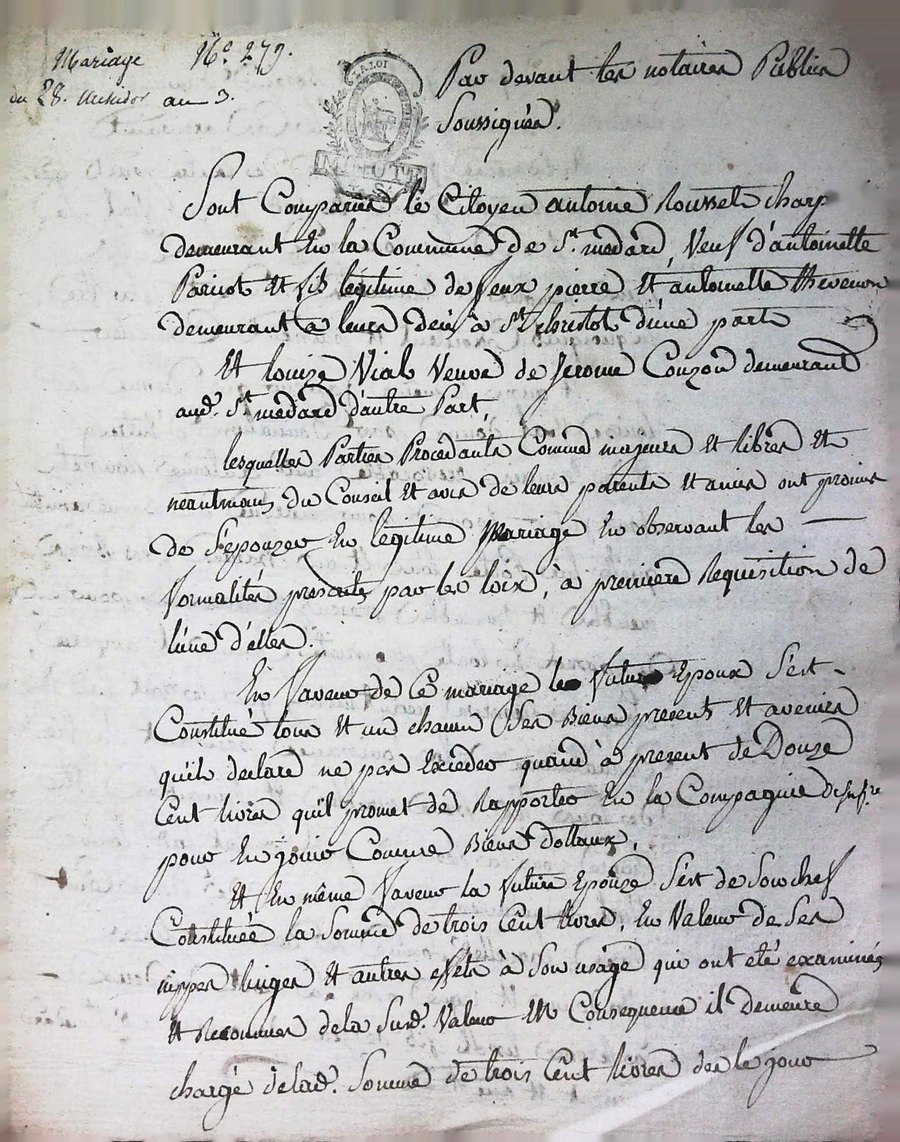 Mariage N.º 279.
du 28. Messidor an 3.
LA LOI
Par devant les notaires Publics
Soussignés.
Sont Comparus le Citoyen antoine Rousset charp
demeurant En la Commune de St. medard, Veuf d'antoinette
Pariot Et fils legitime de feux pierre Et antoinette thevenon
demeurant a leurs deces à St. christot d'une part
Et louize Vial Veuve de Jerome Couzon demeurant
aud. St. medard d'autre Part,
lesquelles Parties Procedants Comme majeurs et libres Et
neantmains du Conseil Et avis de leurs parents Et amis ont promis
de S'epouzer En legitime Mariage En observant les
formalités prescrites par les loix, à premiere Requisition de
l'une d'elles.
En faveur de Ce mariage le futur Epoux S'est
Constitué tous Et un chacun Ses Biens present Et avenirs
qu'il declare ne pas Exceder quand à present de Douze
Cent livres qu'il promet de Rapporter En la Compagnie de
pour En jouir Comme Biens dottaux,
Et En même faveur la future Epouze S'est de Son chef
Constituée la Somme de trois Cent livres, En Valeur de Ses
nippes linges Et autres effets à Son usage qui ont eté examinés
Et Reconnus de la Susd. Valeur En Consequence il Demeure
chargé de lad. Somme de trois Cent livres des le jour